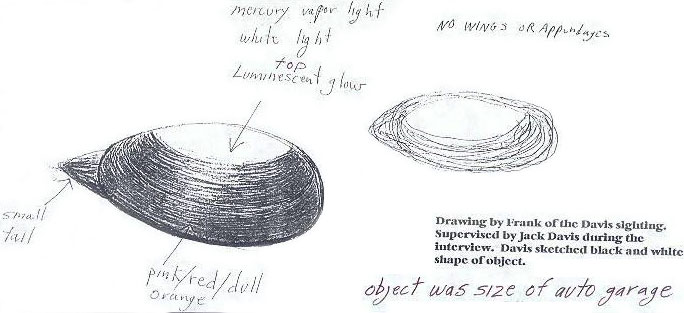 mercury vapor light
white light
top
Luminescent glow
NO WINGS OR Appendages
small
tail
pink/red/dull
orange
Drawing by Frank of the Davis sighting.
Supervised by Jack Davis during the
interview. Davis sketched black and white
shape of object.
object was size of auto garage